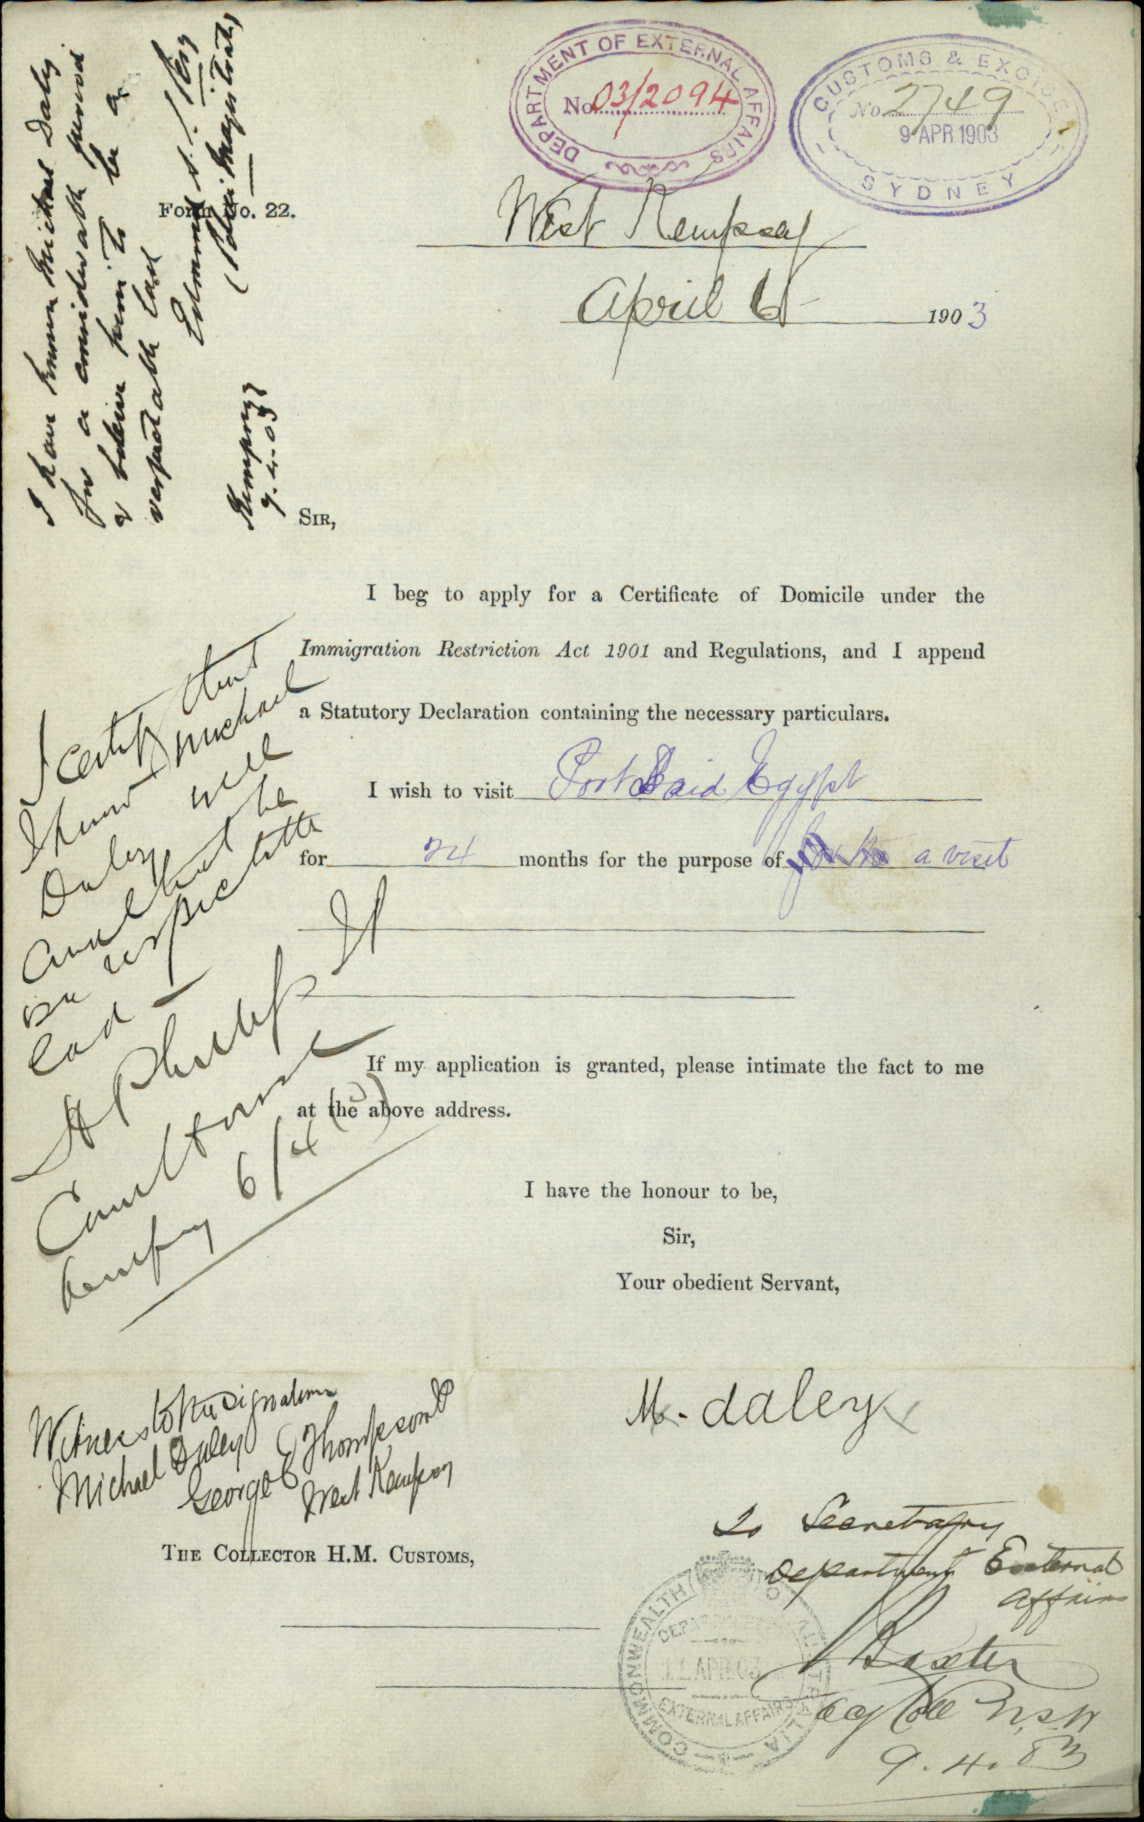 DEPARTMENT OF EXTERNAL AFFAIRS
No. 03/2094
CUSTOMS & EXCISE
No. 2749
9 APR 1903
SYDNEY
Form No. 22.
West Kempsey
April 6 1903
I have known Michael Daley
for a considerable period
& believe him to be a
respectable lad
(Police Magistrate)
Kempsey
9.4.03
SIR,
I beg to apply for a Certificate of Domicile under the
Immigration Restriction Act 1901 and Regulations, and I append
a Statutory Declaration containing the necessary particulars.
I wish to visit Port Said Egypt
for 24 months for the purpose of a visit
I certify that
I know Michael
Daley well
and that he
is a respectable
lad
Phillips JP
Court House
Kempsey 6/4/03
If my application is granted, please intimate the fact to me
at the above address.
I have the honour to be,
Sir,
Your obedient Servant,
M. daley
Witness to the signature
Michael Daley
George Thompson JP
West Kempsey
THE COLLECTOR H.M. CUSTOMS,
To Secretary
Department External
Affairs
Baxter
NSW
9.4.03
COMMONWEALTH OF AUSTRALIA
APR.03
EXTERNAL AFFAIRS